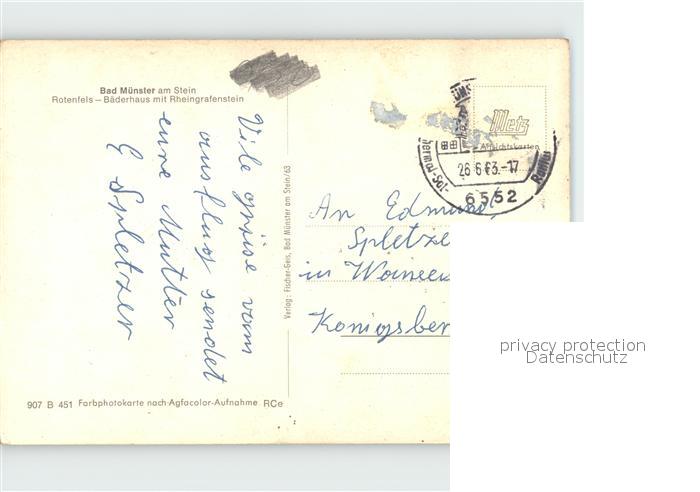 Bad Münster am Stein
Rotenfels – Bäderhaus mit Rheingrafenstein
Vile grüse vom
ausflug sendet
eure Mutter
E Spletzer
Verlag: Fischer-Geis, Bad Münster am Stein/63
Metz
Ansichtskarten
26.6.63.-17
6552
An Edmund
Spletze
in
Konigsber
907 B 451 Farbphotokarte nach Agfacolor-Aufnahme RCe
privacy protection
Datenschutz